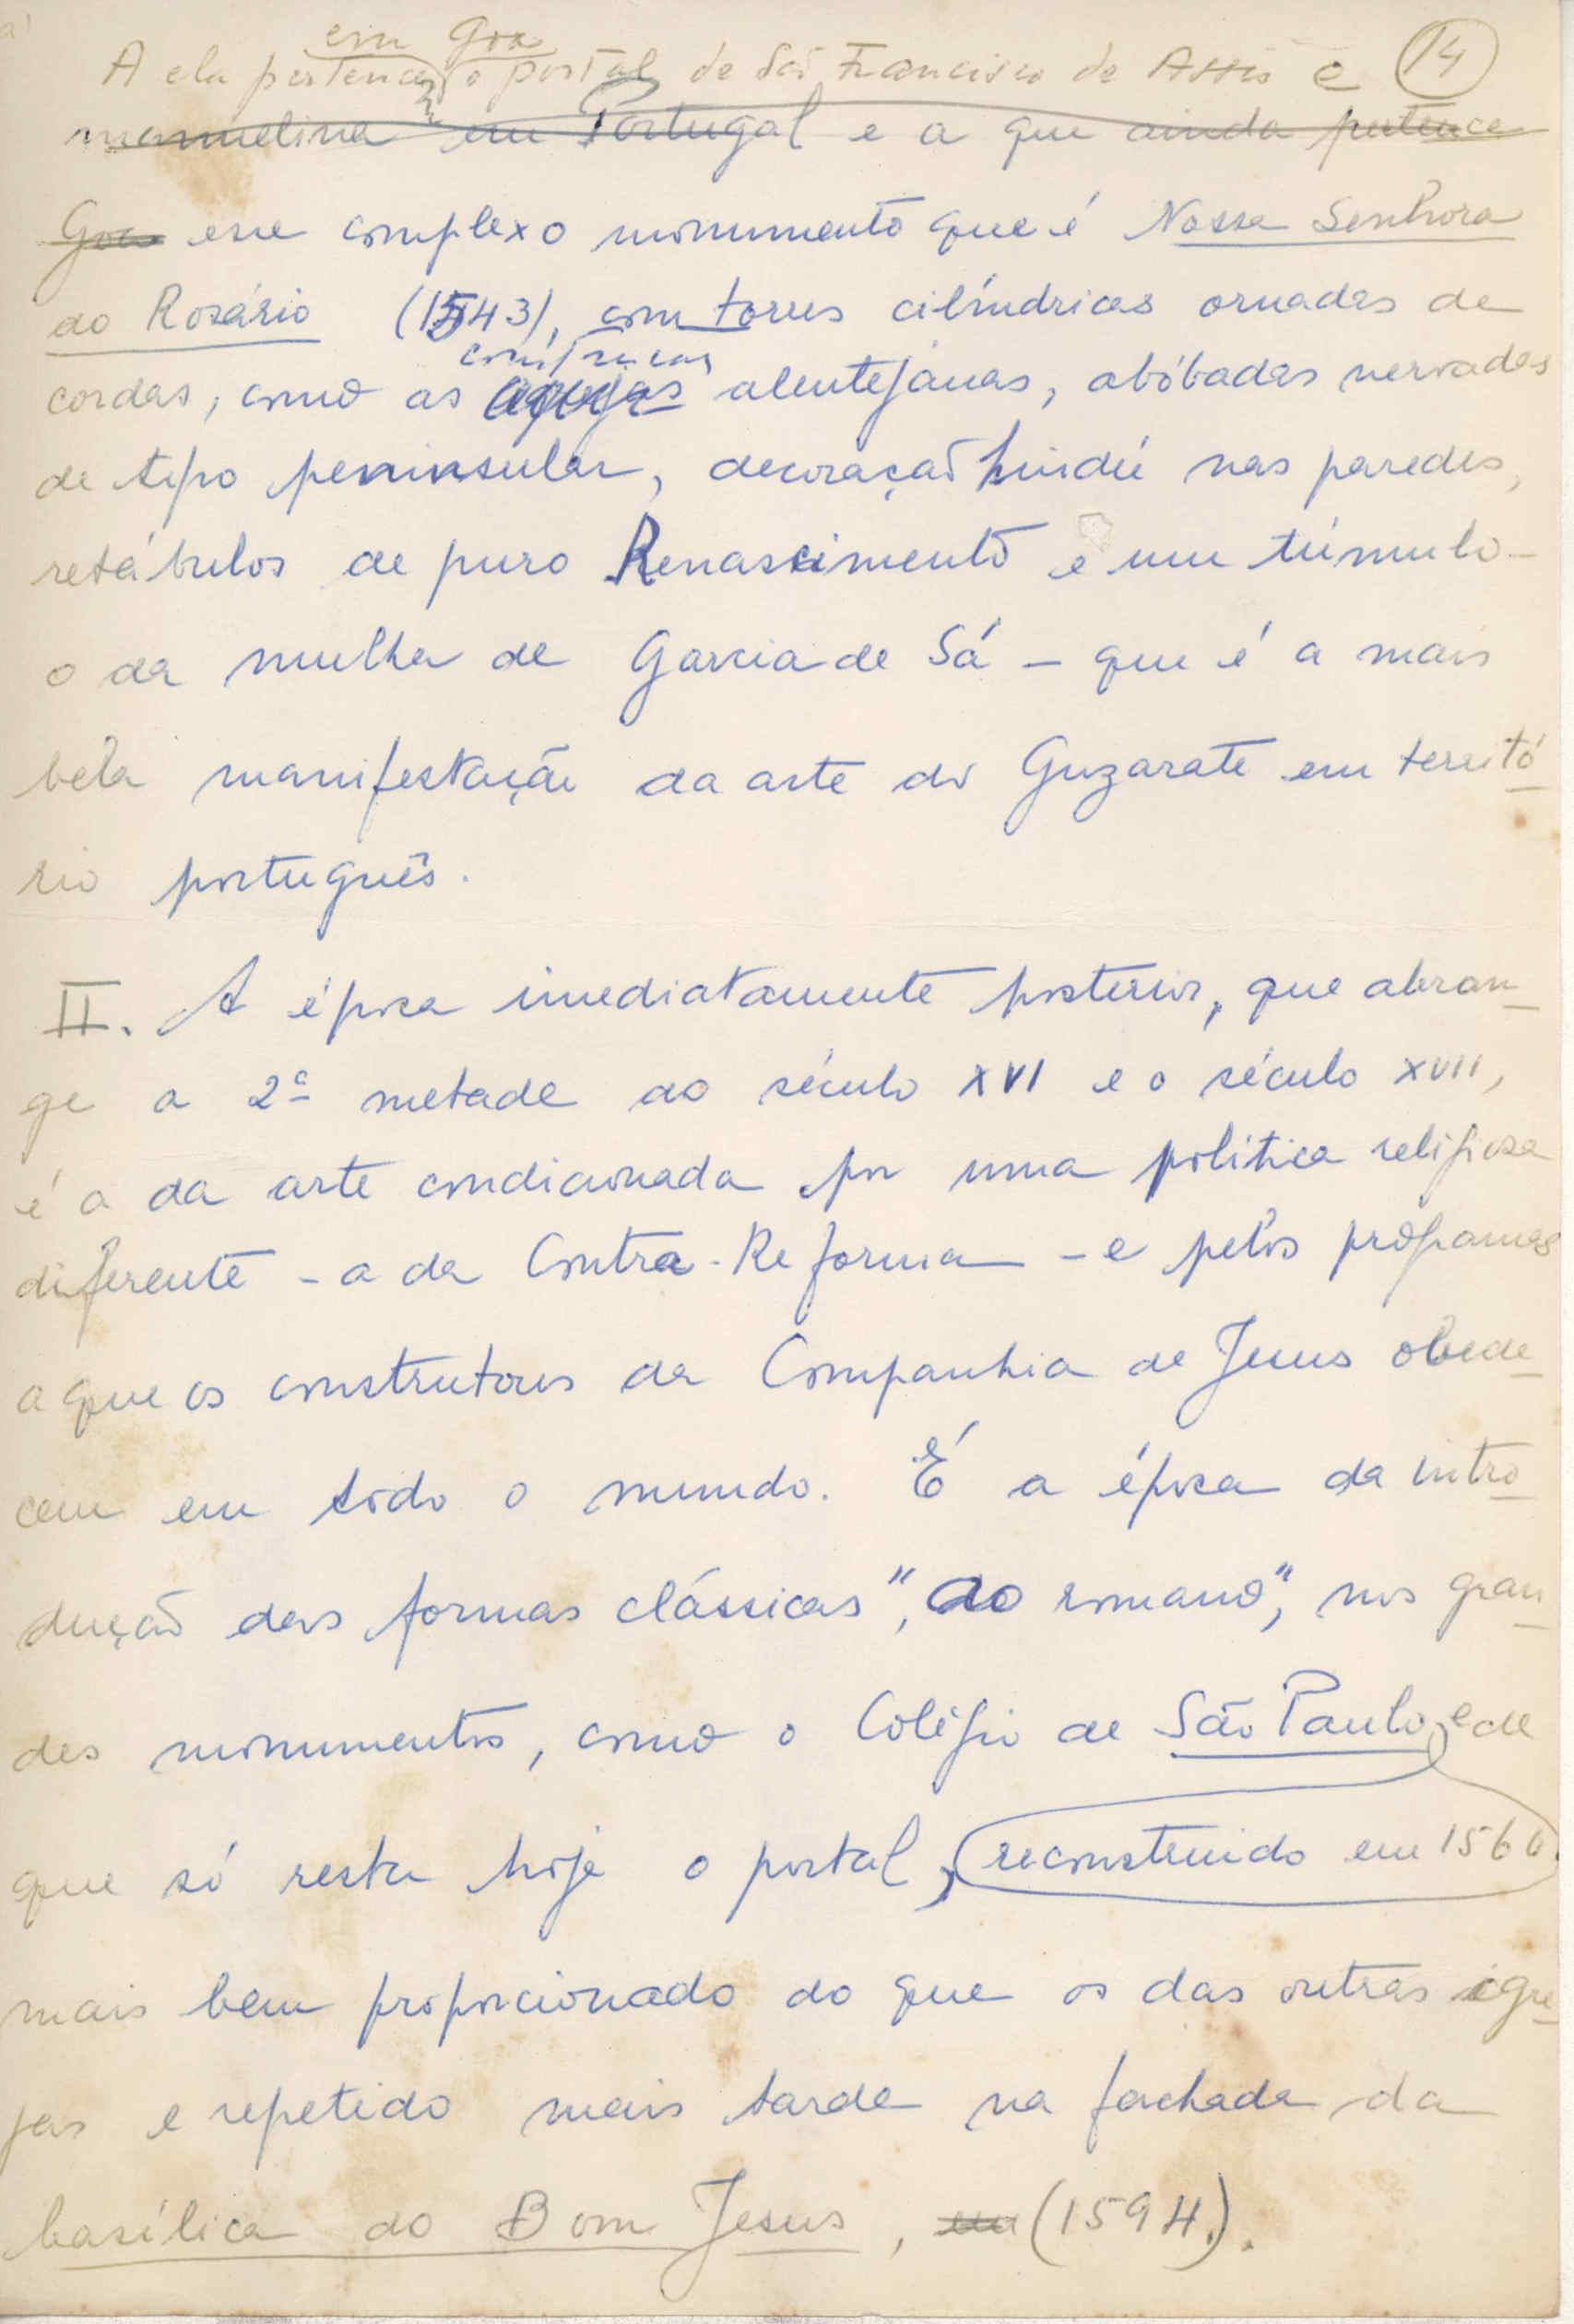 14
em Goa
A ela pertencem o portal de São Francisco de Assis e
manuelina em Portugal e a que ainda pertence
Goa esse complexo monumento que é Nossa Senhora
do Rosário (1543), com torres cilíndricas ornadas de
construções
cordas, como as alentejanas, abóbadas nervadas
de tipo peninsular, decoração hindú nas paredes,
retábulos de puro Renascimento e um túmulo –
o da mulher de Garcia de Sá – que é a mais
bela manifestação da arte do Guzarate em territó
rio português.
II. A época imediatamente posterior, que abran-
ge a 2ª metade do século XVI e o século XVII,
é a da arte condicionada por uma politica religiosa
diferente – a da Contra-Reforma – e pelos programas
a que os construtores da Companhia de Jesus obede-
cem em todo o mundo. É a época da intro-
dução das formas clássicas, "ao romano", nos gran-
des monumentos, como o Colégio de São Paulo, e de
que só resta hoje o portal, reconstruido em 1560
mais bem proporcionado do que os das outras igre-
jas e repetido mais tarde na fachada da
basílica do Bom Jesus, em (1594).